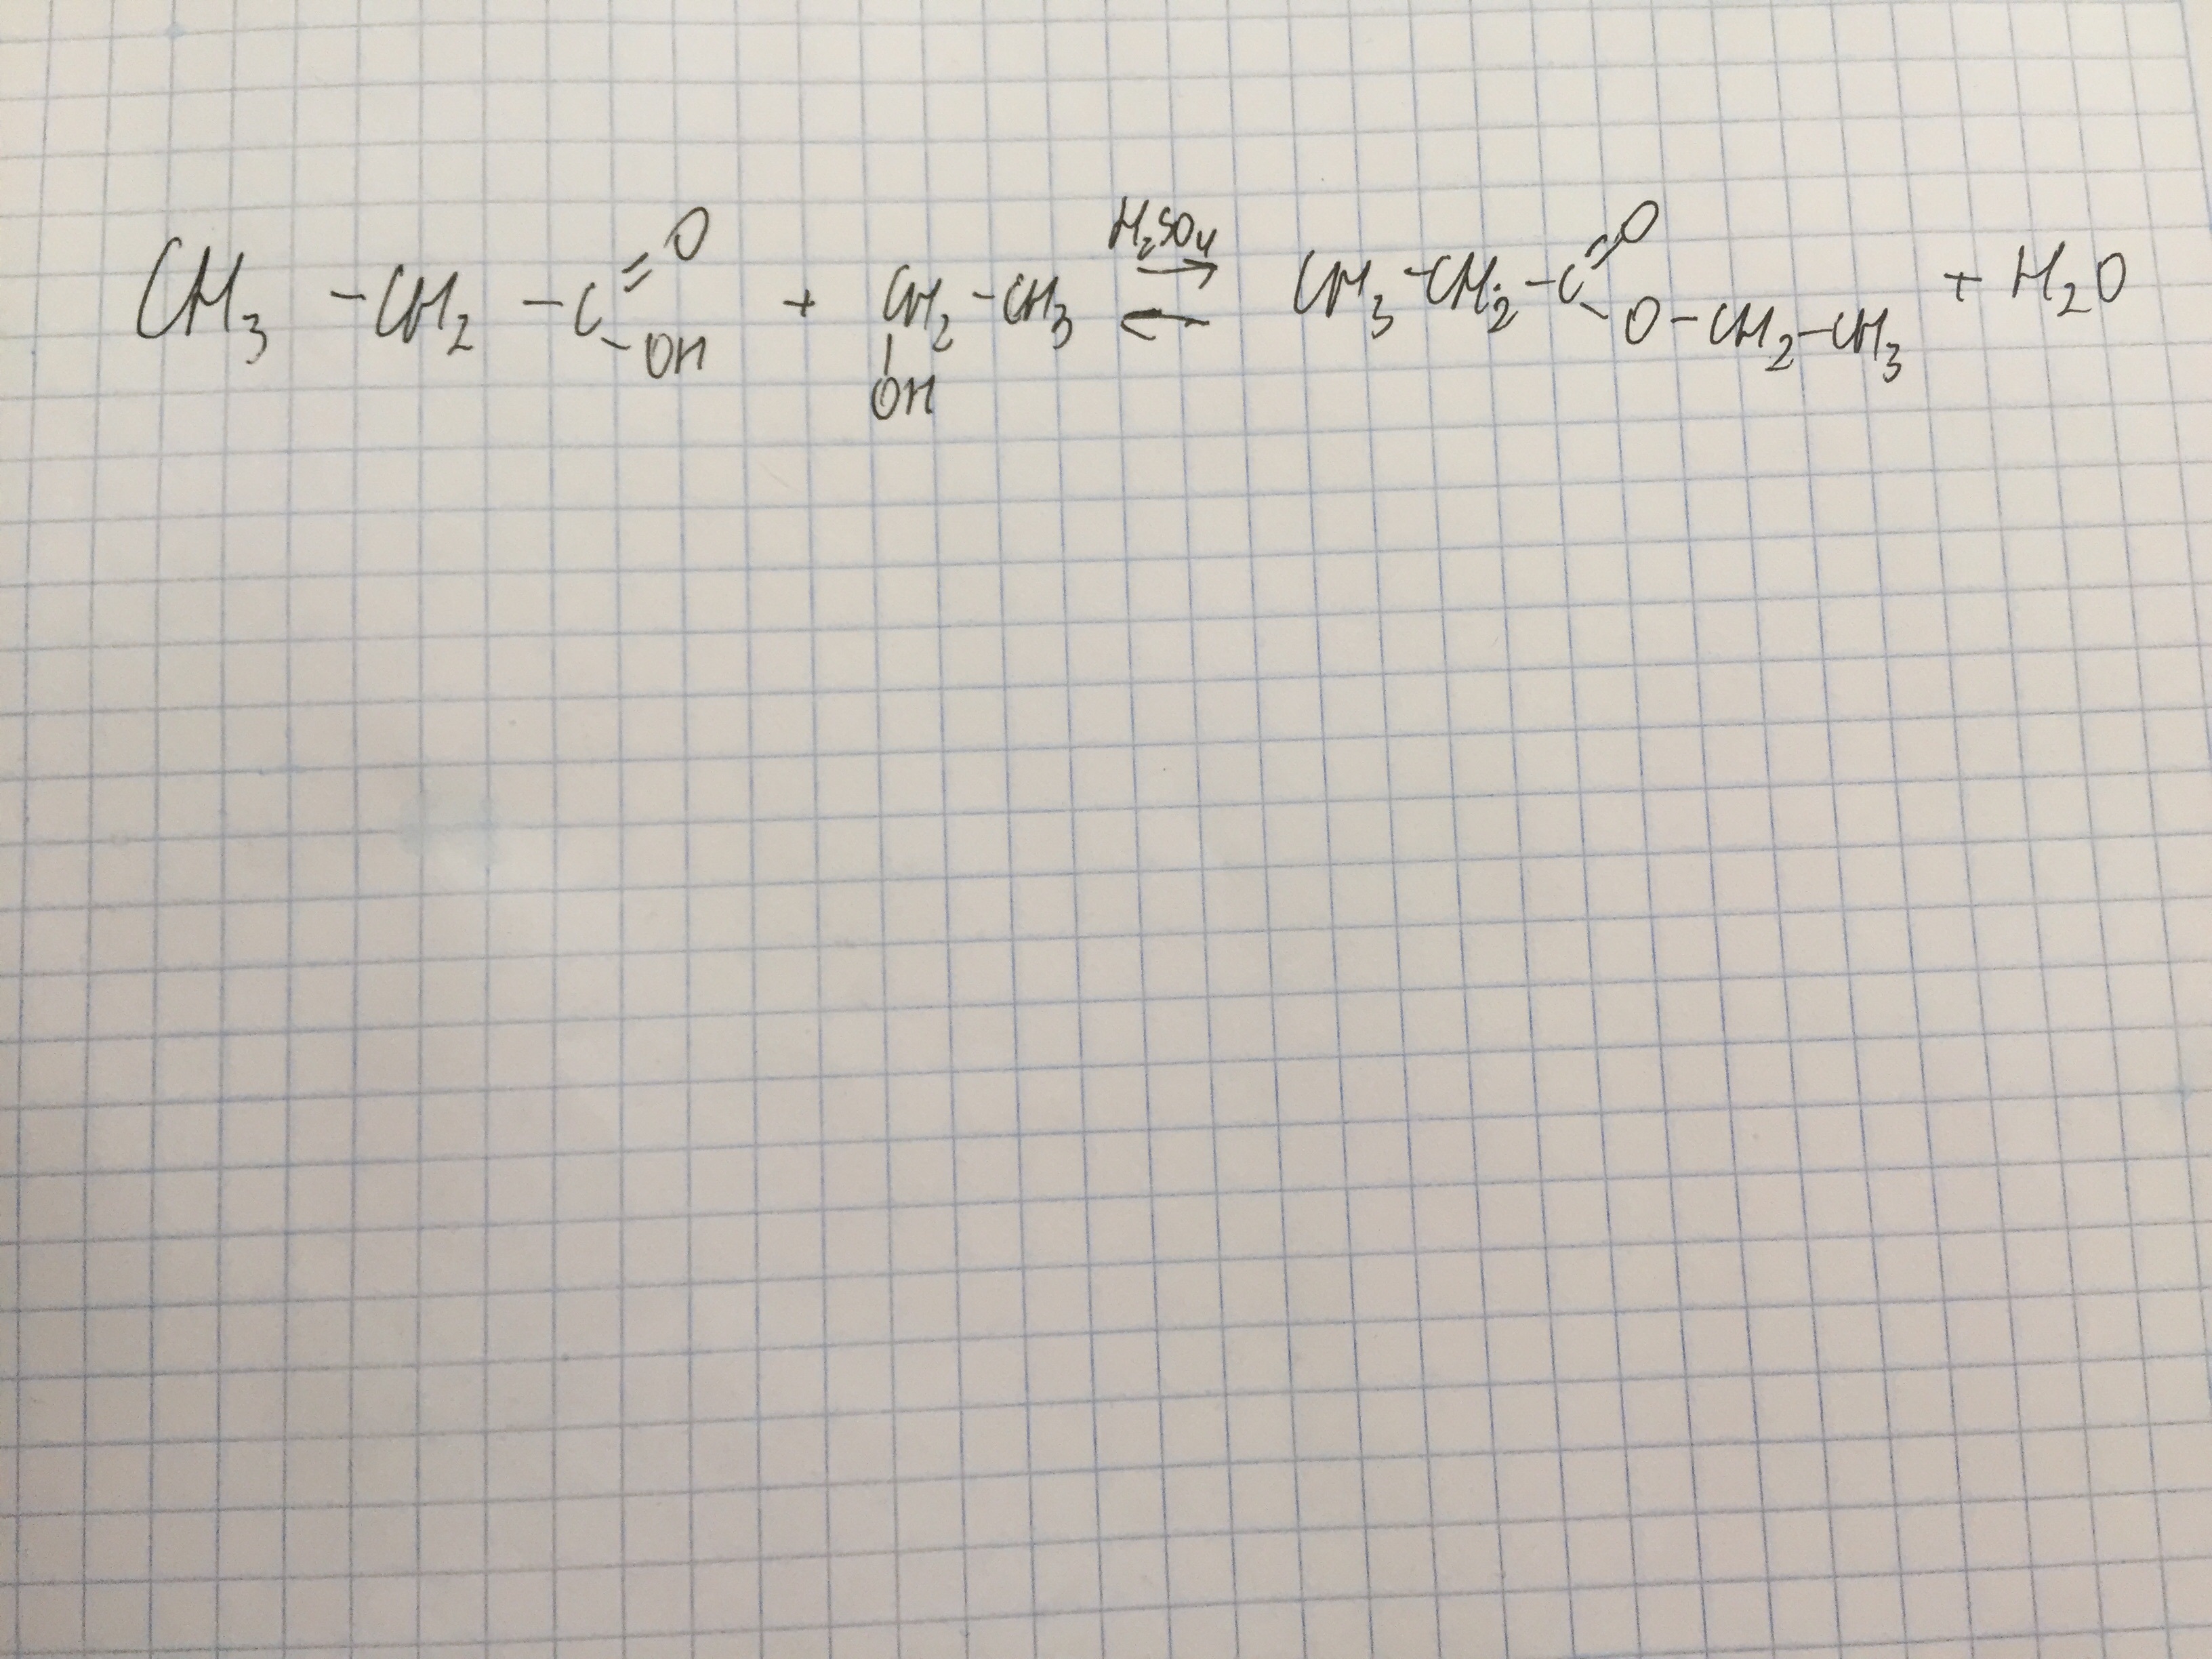 CH3 -CH2 -C =O -OH + CH2 -CH3 OH H2SO4 ⇌ CH3 -CH2 -C =O -O-CH2-CH3 + H2O